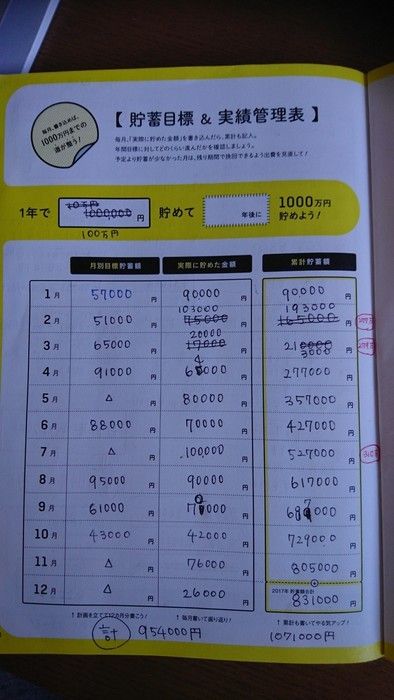 毎月、書き込めば、
1000万円までの
道が整う！
【 貯蓄目標 & 実績管理表 】
毎月、「実際に貯めた金額」を書き込んだら、累計も記入。
年間目標に対してどのくらい進んだかを確認しましょう。
予定より貯蓄が少なかった月は、残り期間で挽回できるよう出費を見直して！
1年で 1000000 円 貯めて 年後に 1000万円
貯めよう！
100万円
月別目標貯蓄額 実際に貯めた金額 累計貯蓄額
1月 57000 円 90000 円 90000 円
103000 193000
2月 51000 円 75000 円 165000 円
20000
3月 65000 円 17000 円 210000 円
3000
4月 91000 円 64000 円 277000 円
5月 △ 円 80000 円 357000 円
6月 88000 円 70000 円 427000 円
7月 △ 円 100000 円 527000 円
8月 95000 円 90000 円 617000 円
9月 61000 円 70000 円 687000 円
10月 43000 円 42000 円 729000 円
11月 △ 円 76000 円 805000 円
12月 △ 円 26000 円 2017年 貯蓄額合計
831000 円
↑ 計画を立てて12か月分書こう！ ↑ 毎月書いて振り返り！ ↑ 累計も書いてやる気アップ！
計 954000円 1071000円